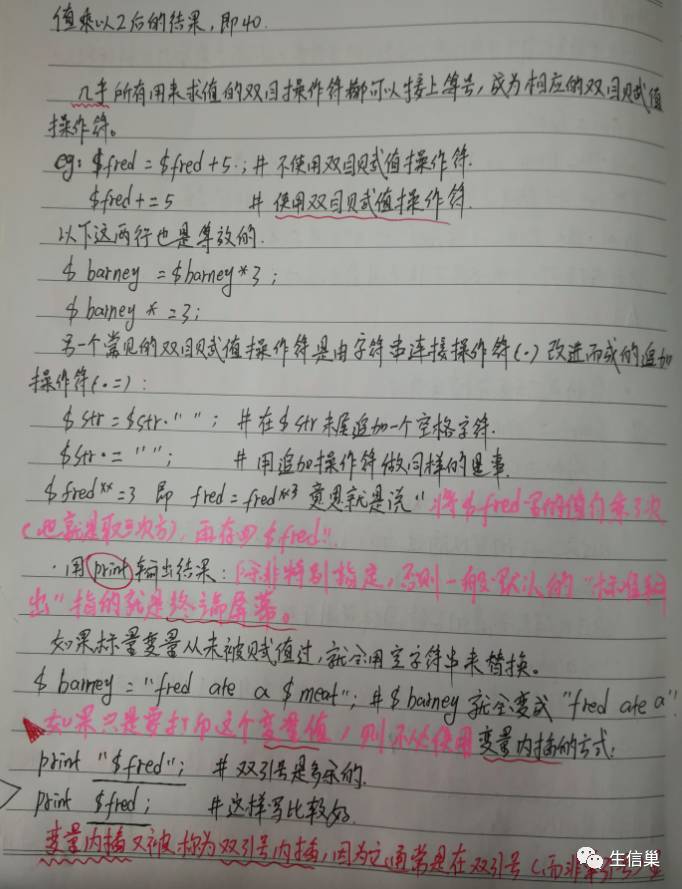 值乘以2后的结果,即40.
几乎所有用来求值的双目操作符都可以接上等号,成为相应的双目赋值
操作符。
eg: $fred = $fred + 5; # 不使用双目赋值操作符.
$fred += 5 # 使用双目赋值操作符.
以下这两行也是等效的.
$ barney = $barney * 3;
$ barney * = 3;
另一个常见的双目赋值操作符是由字符串连接操作符(.)改进而成的追加
操作符(.=):
$str = $str . " "; # 在$str末尾追加一个空格字符.
$str . = " "; # 用追加操作符做同样的是事.
$fred ** = 3 即 fred = fred**3 意思就是说"将$fred里的值自乘3次
(也就是取3次方),再存回$fred".
·用print输出结果:除非特别指定,否则一般默认的"标准输
出"指的就是终端屏幕。
如果标量变量从未被赋值过,就会用空字符串来替换。
$ barney = "fred ate a $meat"; # $barney就会变成"fred ate a".
如果只是要打印这个变量值,则不必使用变量内插的方式:
print "$fred"; # 双引号是多余的.
print $fred; # 这样写比较好.
变量内插又被称为双引号内插,因为它通常是在双引号(而非单引号)
生信巢